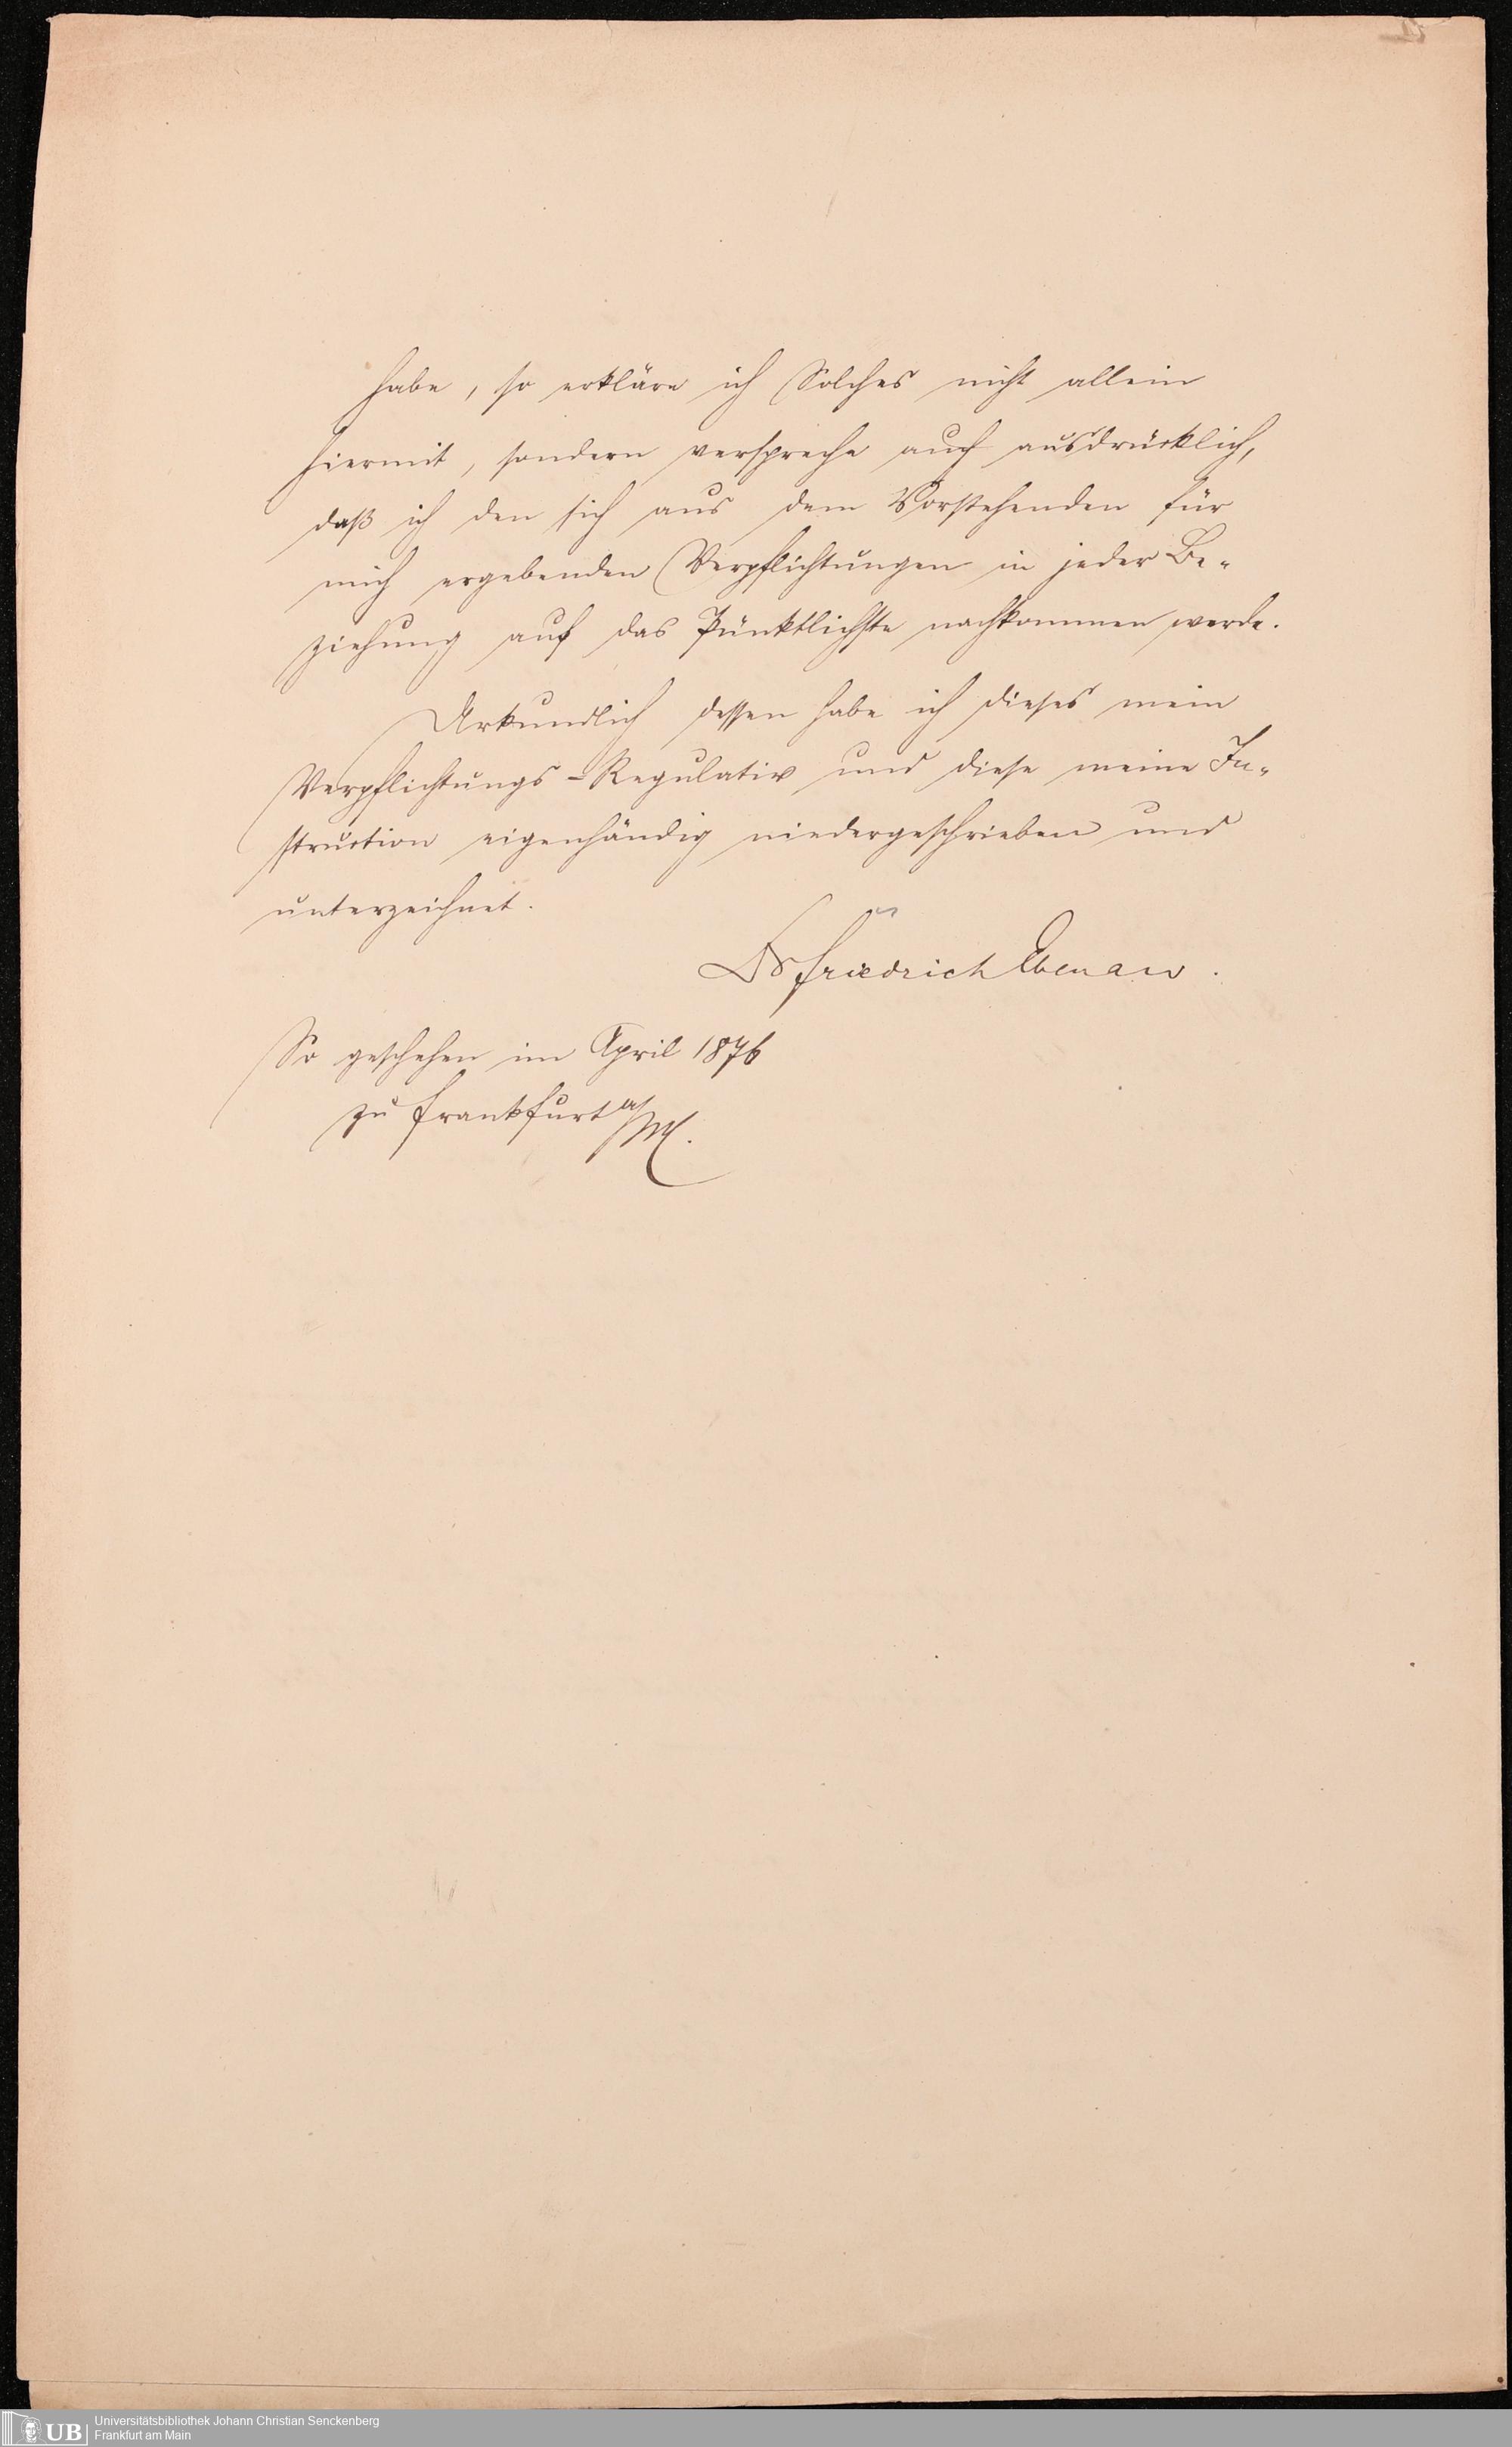 habe, so erkläre ich Solches nicht allein
hiermit, sondern verspreche auch ausdrücklich,
daß ich den sich aus dem Vorstehenden für
mich ergebenden Verpflichtungen in jeder Be-
ziehung auf das Pünktlichste nachkommen werde.
Urkundlich dessen habe ich dieses mein
Verpflichtungs-Regulativ und diese meine In-
struction eigenhändig niedergeschrieben und
unterzeichnet.
Dr Friedrich Ebenau.
So geschehen im April 1876
zu Frankfurt a/M.
UB
Universitätsbibliothek Johann Christian Senckenberg
Frankfurt am Main